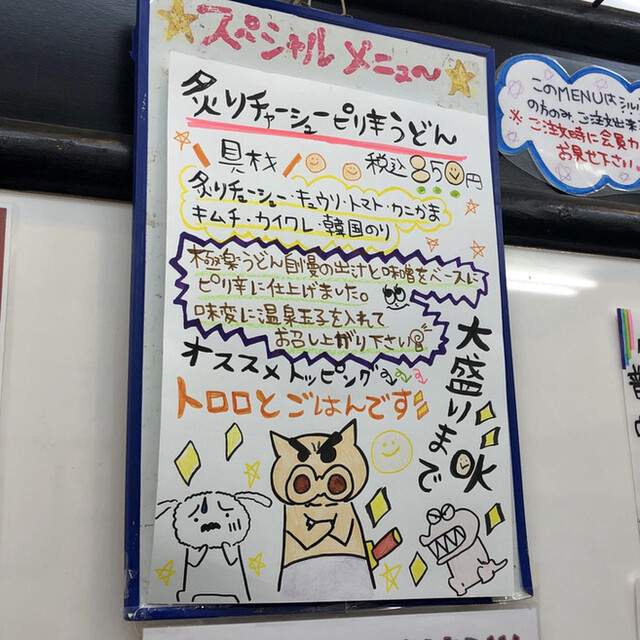 スペシャルメニュ〜
炙りチャーシューピリ辛うどん
具材
税込850円
炙りチャーシュー・キュウリ・トマト・カニかま
キムチ・カイワレ・韓国のり
極楽うどん自慢の出汁と味噌をベースに
ピリ辛に仕上げました。
味変に温泉玉子を入れて
お召し上がり下さい
オススメトッピング
トロロとごはんです
大盛りまでOK
このMENUはシル
の方のみ、ご注文出来
※ご注文時に会員カ
お見せ下さい